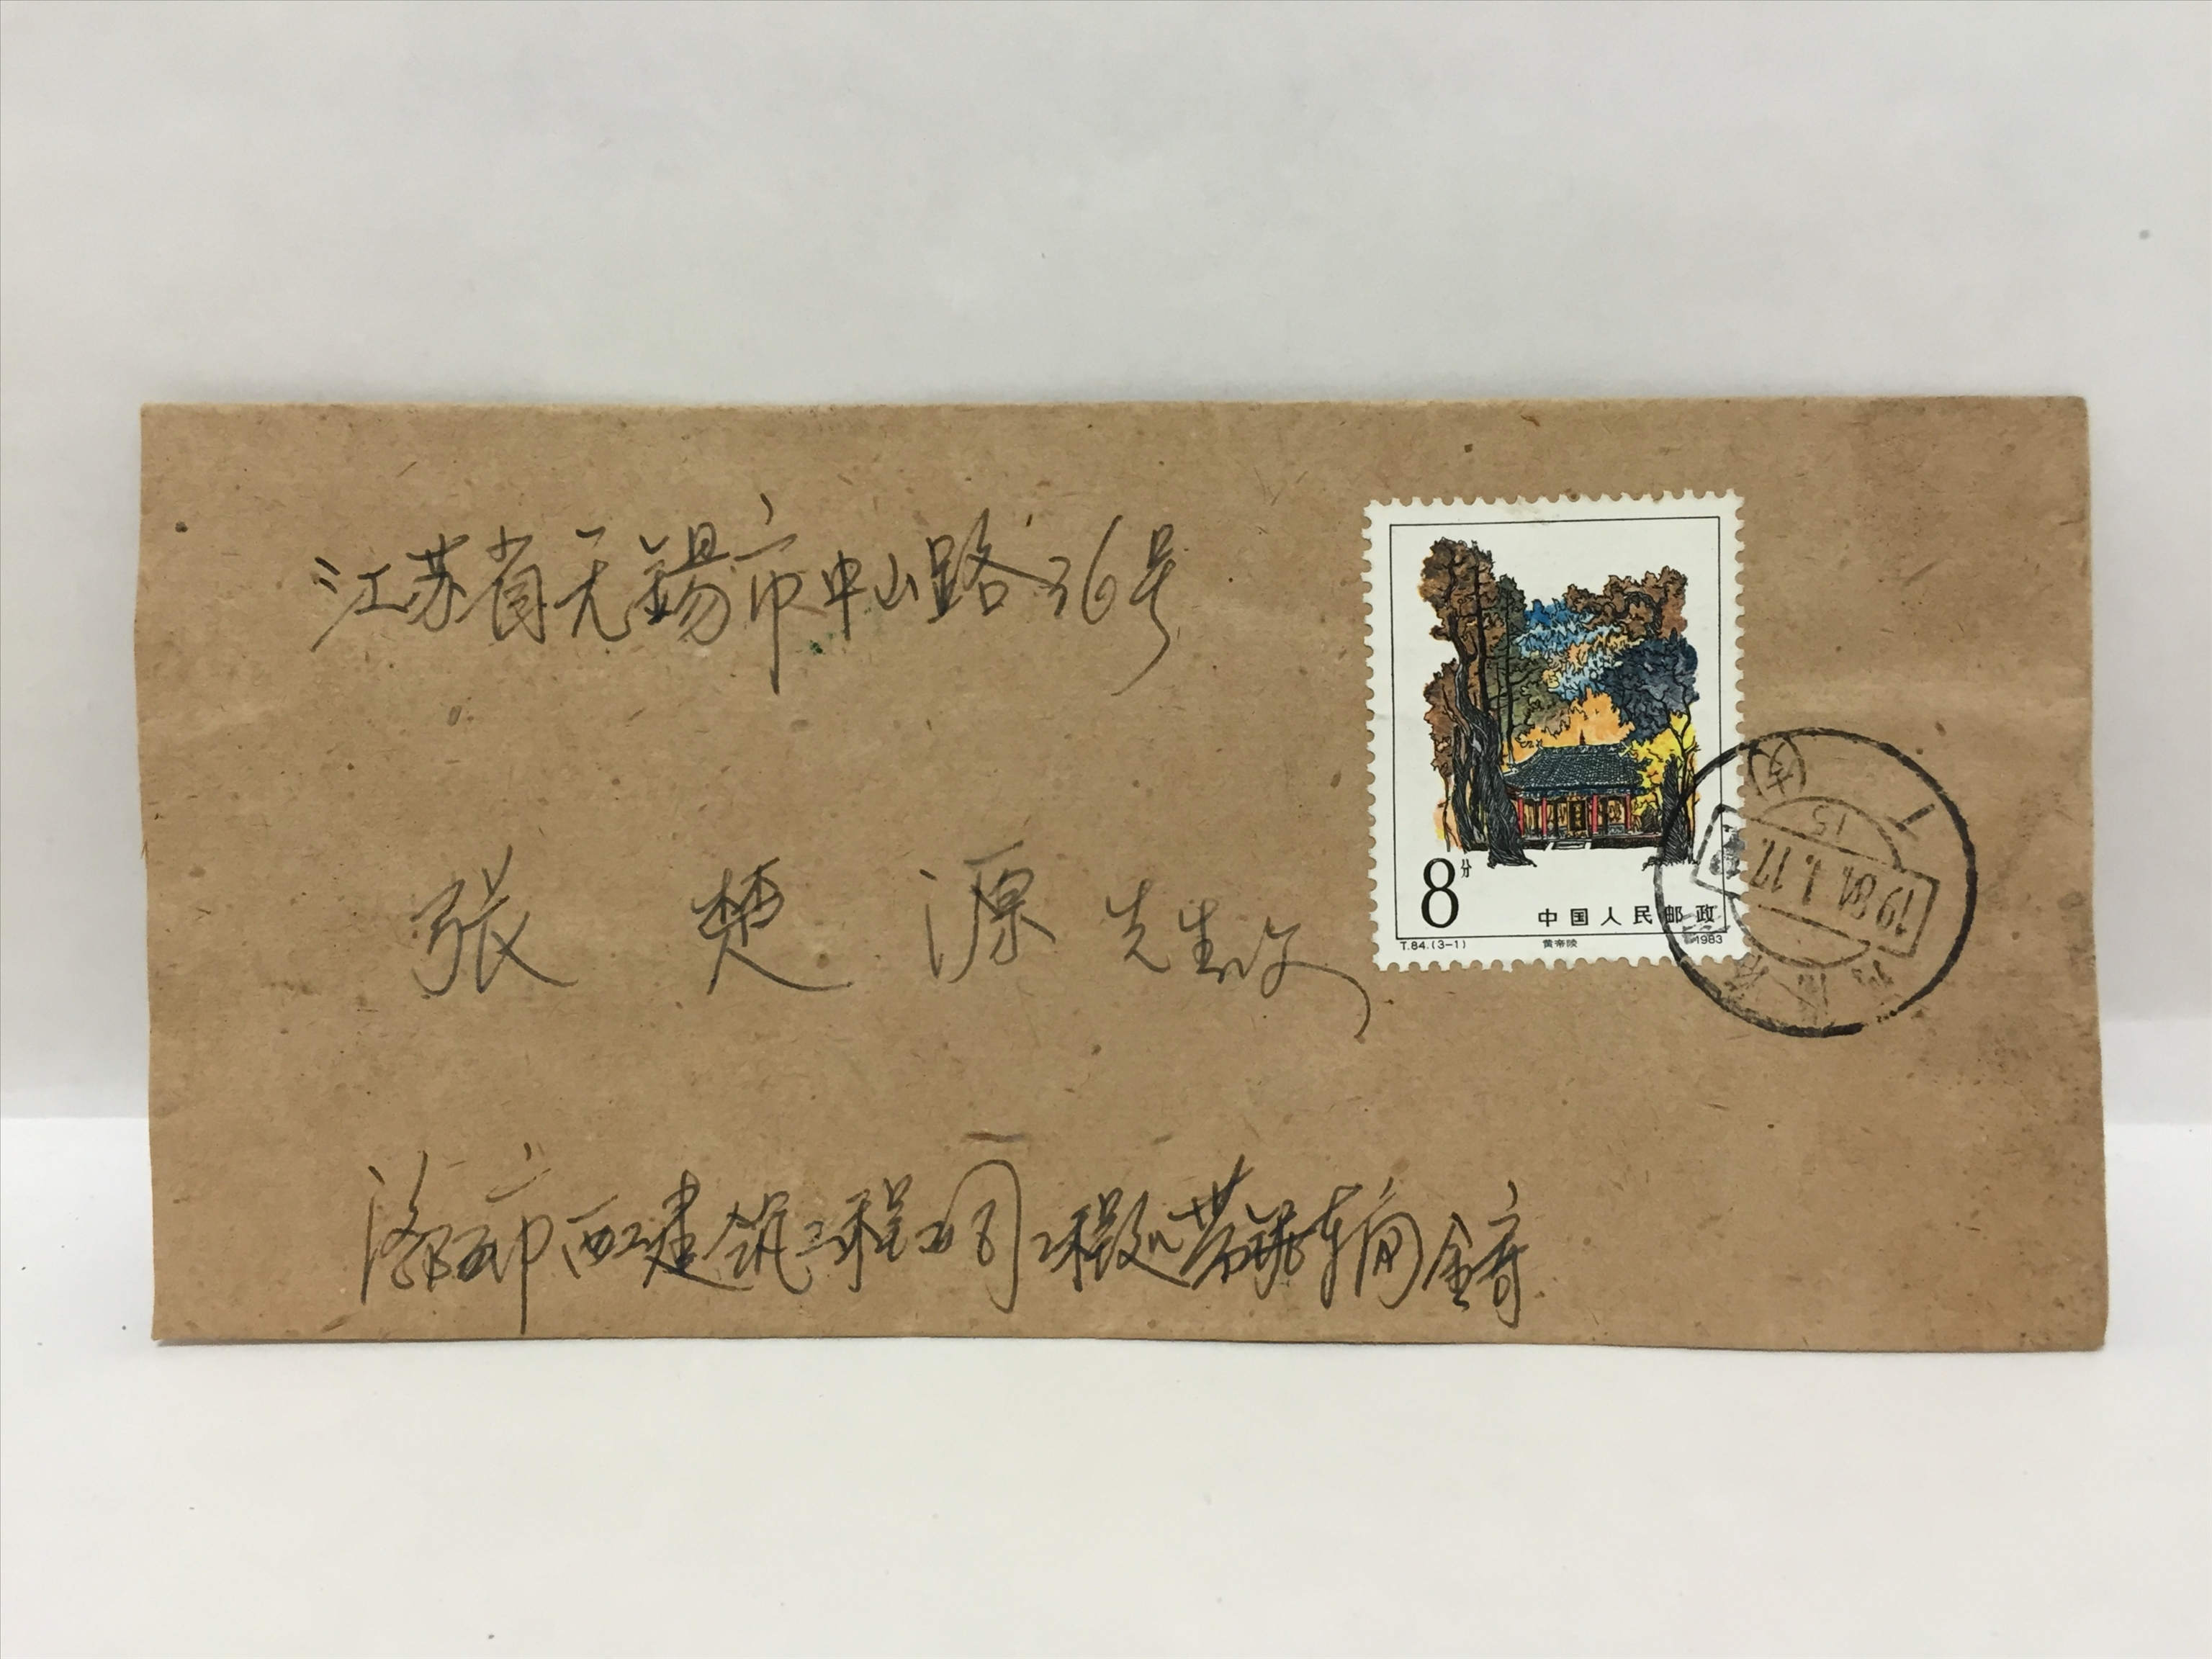 江苏省无锡市中山路36号
张楚源先生收
8分
中国人民邮政
T.84.(3-1) 黄帝陵 1983
市西工建筑工程公司工程处
15
1984.1.17